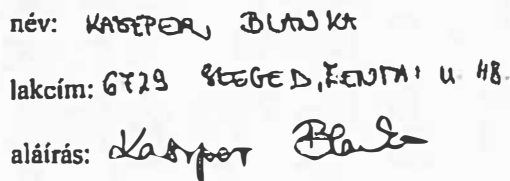 név: KASZPER BLANKA
lakcím: 6729 SZEGED, ZENTAI U. 48.
aláírás: Kaszper Blanka